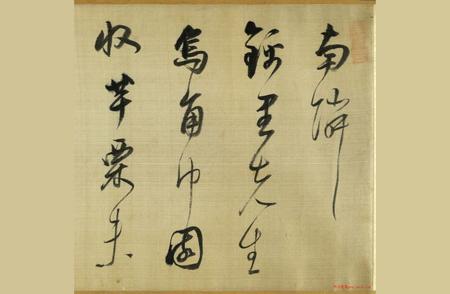 南隣
錦里先生
烏角巾園
收芋栗未